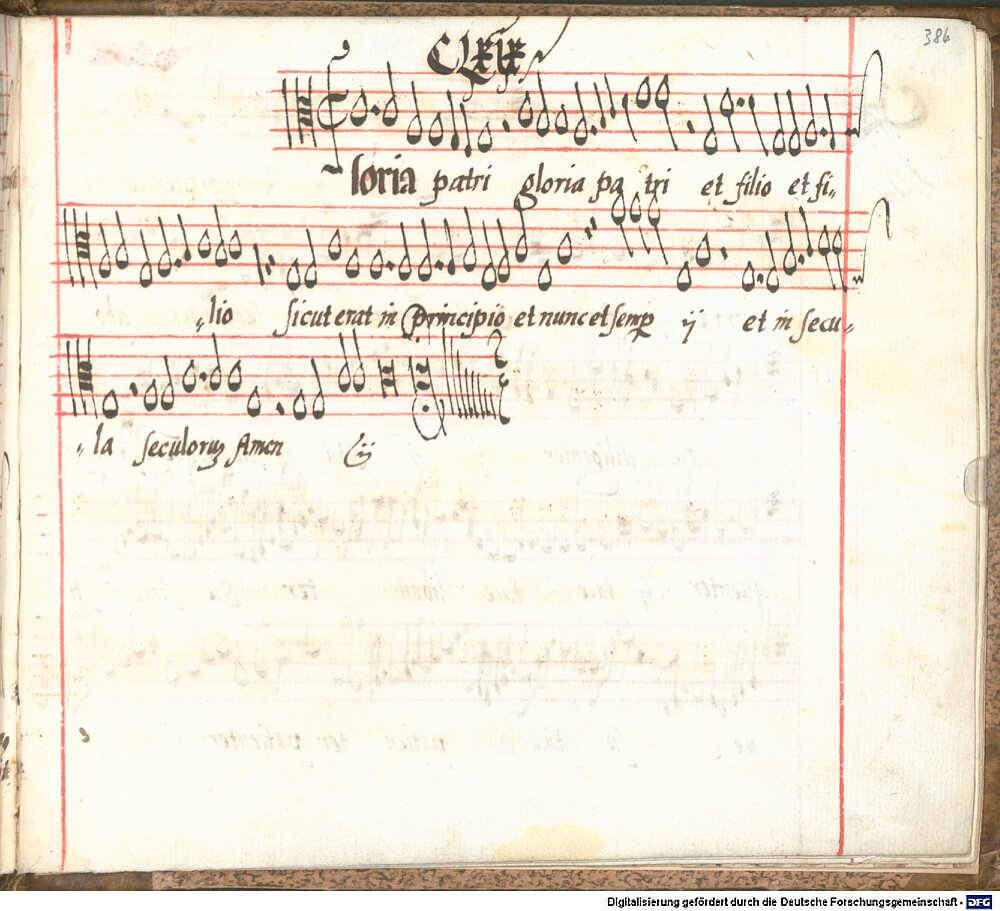 CLxix
384
loria patri gloria patri et filio et fi„
„lio sicut erat in principio et nunc et semp ij et in secu„
„la seculoruz Amen ij
Digitalisierung gefördert durch die Deutsche Forschungsgemeinschaft - DFG